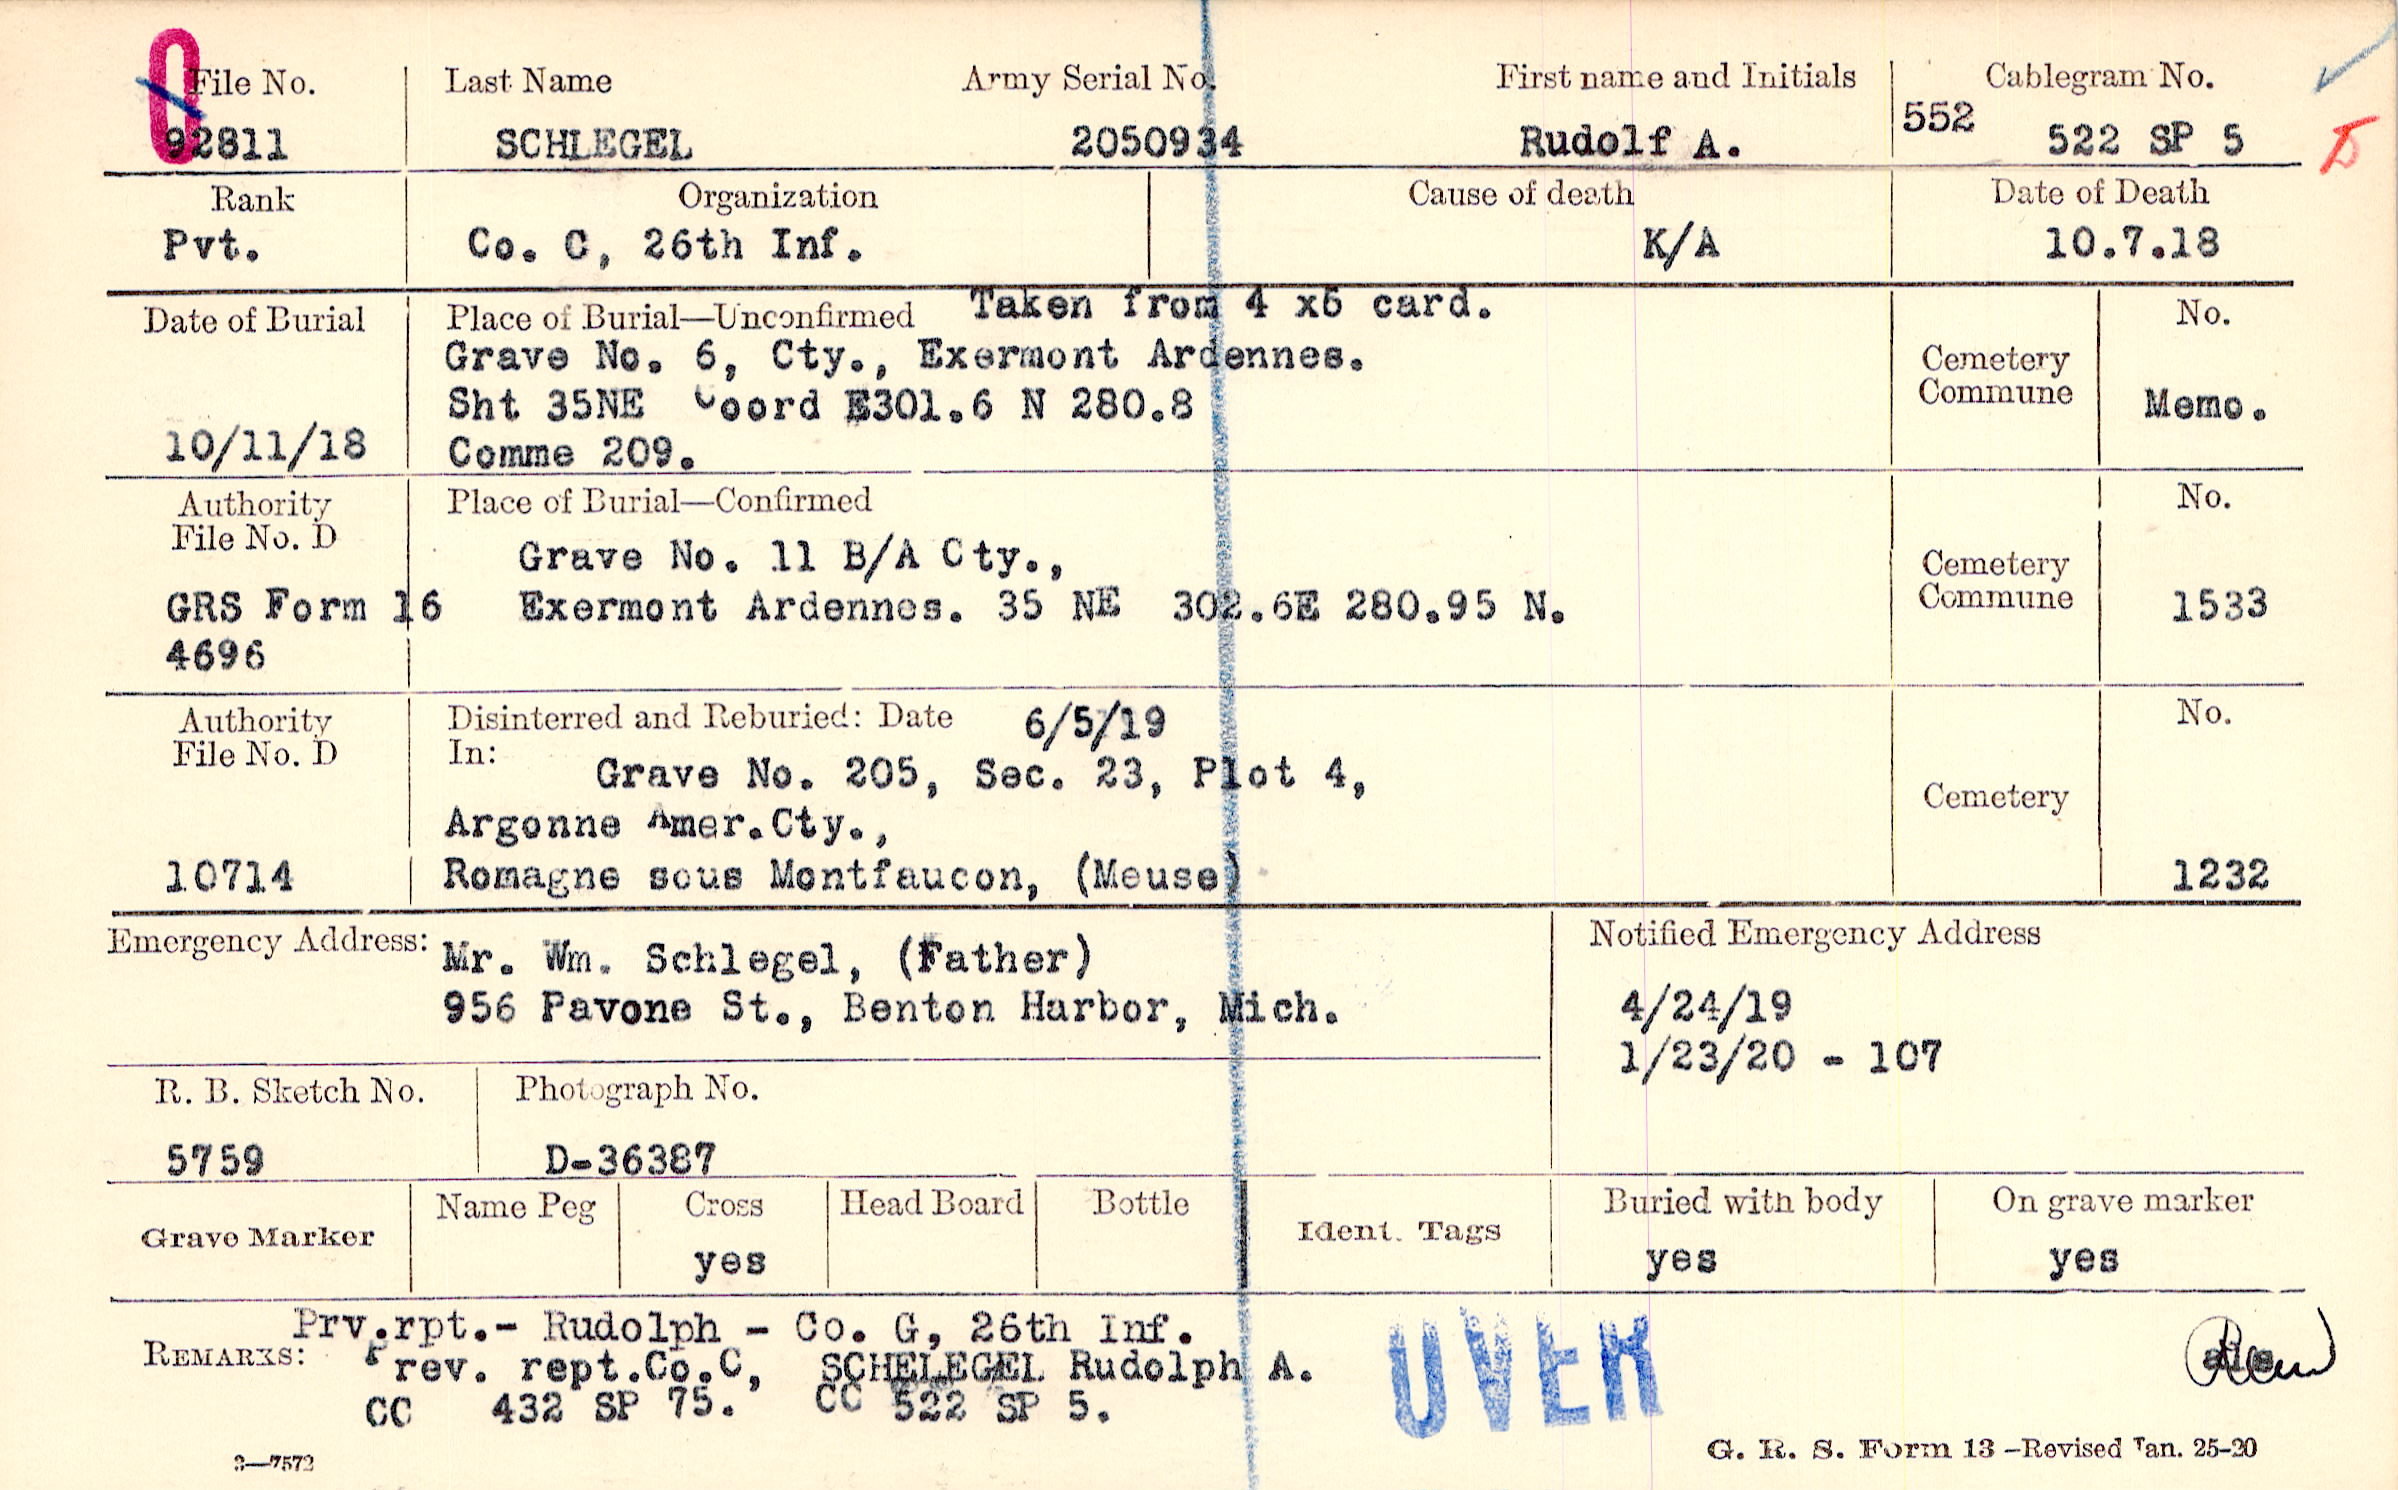 File No. Last Name Army Serial No. First name and Initials Cablegram No.
92811 SCHLEGEL 2050934 Rudolf A. 552 522 SP 5
Rank Organization Cause of death Date of Death
Pvt. Co. C, 26th Inf. K/A 10.7.18
Date of Burial Place of Burial—Unconfirmed Taken from 4 x6 card. No.
Grave No. 6, Cty., Exermont Ardennes. Cemetery
Commune
Sht 35NE Coord E301.6 N 280.8 Memo.
10/11/18 Comme 209.
Authority Place of Burial—Confirmed No.
File No. D
Grave No. 11 B/A Cty., Cemetery
GRS Form 16 Exermont Ardennes. 35 NE 302.6E 280.95 N. Commune 1533
4696
Authority Disinterred and Reburied: Date 6/5/19 No.
File No. D In:
Grave No. 205, Sec. 23, Plot 4,
Argonne Amer.Cty., Cemetery
10714 Romagne sous Montfaucon, (Meuse) 1232
Emergency Address: Mr. Wm. Schlegel, (Father) Notified Emergency Address
956 Pavone St., Benton Harbor, Mich. 4/24/19
1/23/20 - 107
R. B. Sketch No. Photograph No.
5759 D-36387
Grave Marker Name Peg Cross Head Board Bottle Ident. Tags Buried with body On grave marker
yes yes yes
Prv.rpt.- Rudolph - Co. G, 26th Inf.
REMARKS: Prev. rept.Co.C, SCHELEGEL Rudolph A.
CC 432 SP 75. CC 522 SP 5.
OVER
3—7572 G. R. S. Form 13 -Revised Jan. 25-20